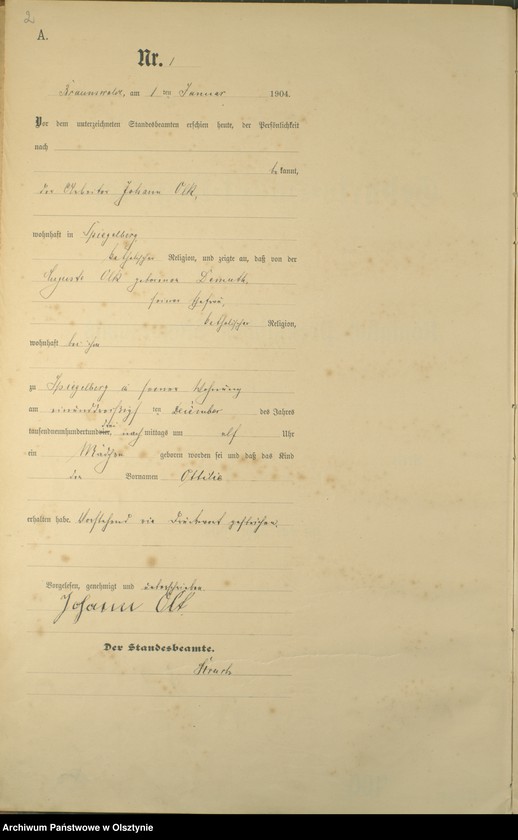 2
A.
Nr. 1
Braunswalde, am 1 ten Januar 1904.
Vor dem unterzeichneten Standesbeamten erschien heute, der Persönlichkeit
nach
bekannt,
der Arbeiter Johann Olk,
wohnhaft in Spiegelberg
katholischer Religion, und zeigte an, daß von der
Auguste Olk geborenen
seiner Ehefrau,
katholischer Religion,
wohnhaft bei ihm
zu Spiegelberg in seiner Wohnung
am einunddreißigsten Dezember des Jahres
tausendneunhundertunddrei, nachmittags um elf Uhr
ein Mädchen geboren worden sei und daß das Kind
den Vornamen Ottilie
erhalten habe. Vorstehend ein Druckwort gestrichen.
Vorgelesen, genehmigt und unterschrieben
Johann Olk
Der Standesbeamte.
Archiwum Państwowe w Olsztynie